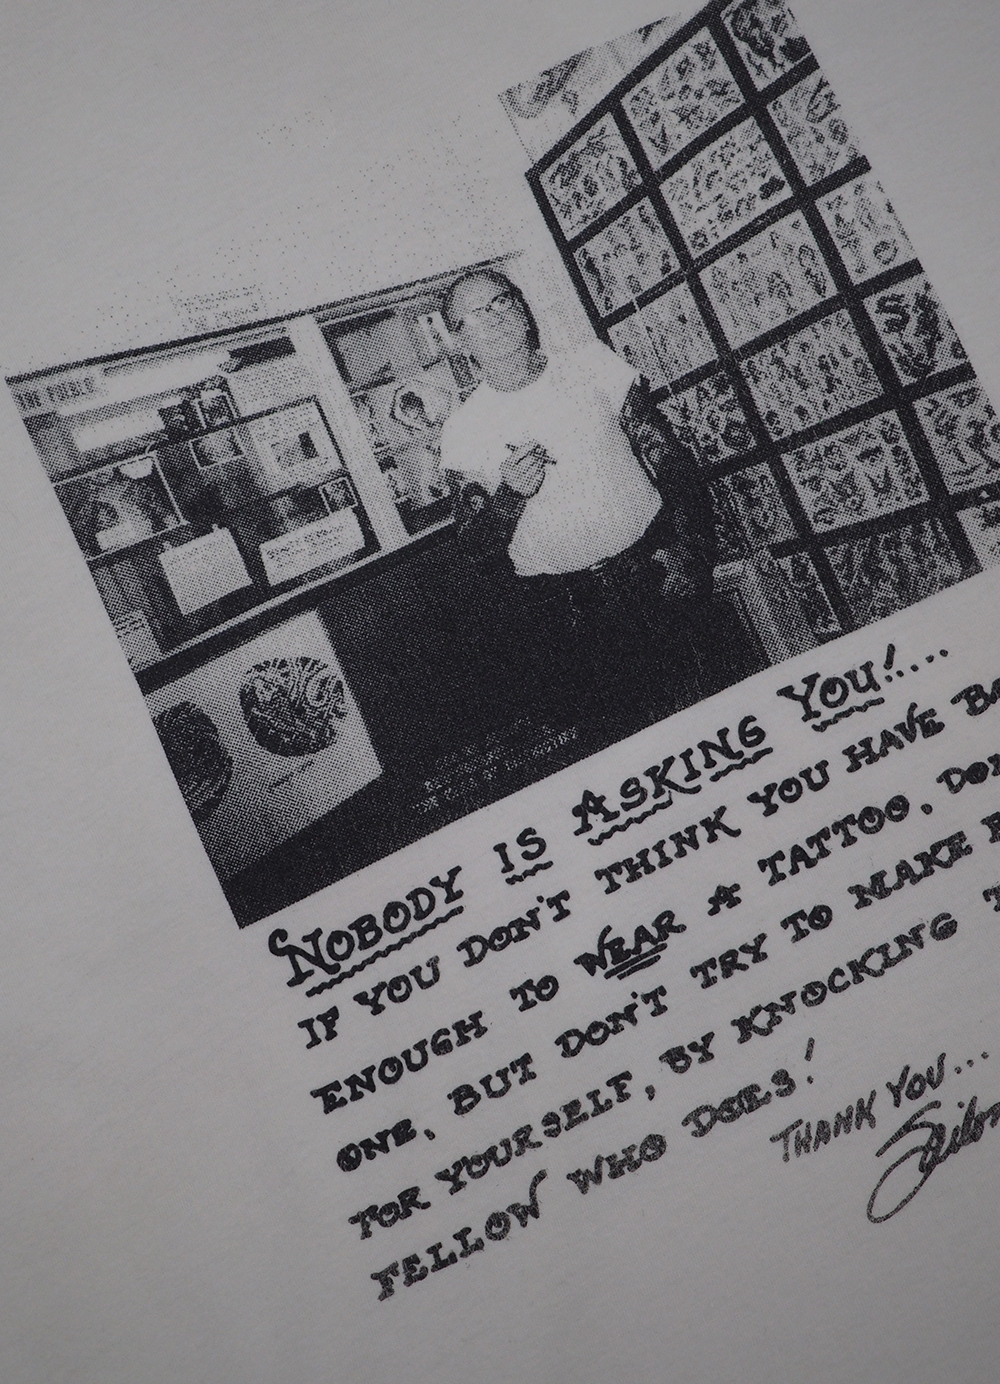 NOBODY IS ASKING YOU!....
IF YOU DON'T THINK YOU HAVE
ENOUGH TO WEAR A TATTOO, DON
ONE, BUT DON'T TRY TO MAKE
FOR YOURSELF, BY KNOCKING
FELLOW WHO DOES!
THANK YOU...
Sailor